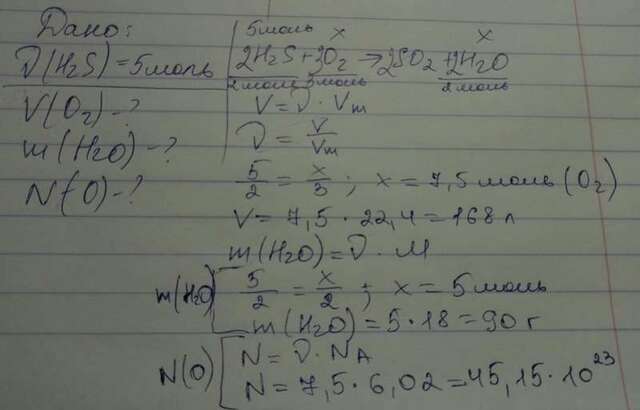 Дано:
ν(H2S) = 5 моль
V(O2) - ?
m(H2O) - ?
N(O) - ?
5 моль x x
2H2S + 3O2 → 2SO2 + 2H2O
2 моль 3 моль 2 моль
V = ν · Vm
ν = V/Vm
5/2 = x/3 ; x = 7,5 моль (O2)
V = 7,5 · 22,4 = 168 л
m(H2O) = ν · M
m(H2O) 5/2 = x/2 ; x = 5 моль
m(H2O) = 5 · 18 = 90 г
N(O) N = ν · NA
N = 7,5 · 6,02 = 45,15 · 10^23